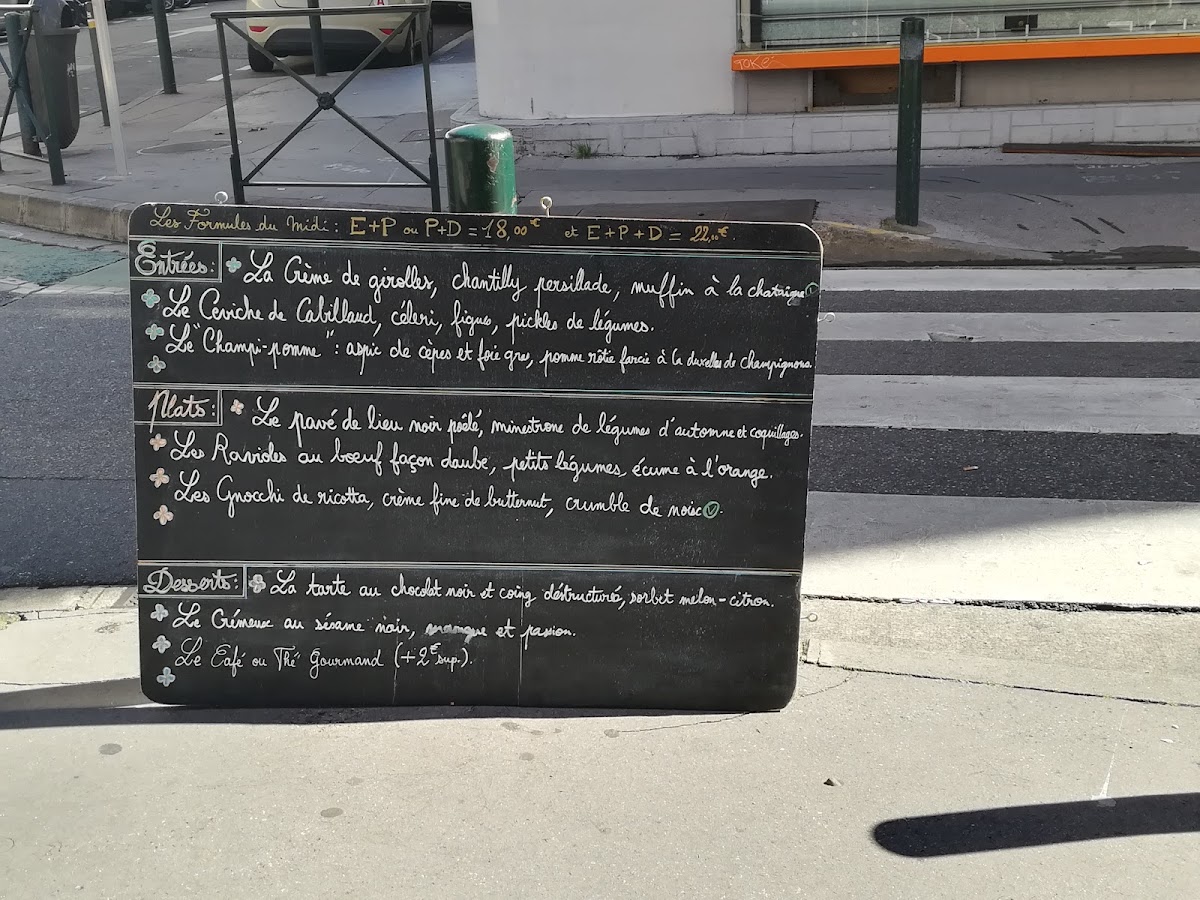 Les Formules du Midi : E+P ou P+D = 18,00€ et E+P+D = 22,00€.
Entrées : La Crème de girolles, chantilly persillade, muffin à la chataigne V
Le Ceviche de Cabillaud, céleri, figue, pickles de légumes.
Le "Champi-pomme" : aspic de cèpes et foie gras, pomme rôtie farcie à la duxelles de champignons.
Plats : Le pavé de lieu noir poêlé, minestrone de légumes d'automne et coquillages.
Les Ravioles au bœuf façon daube, petits légumes, écume à l'orange.
Les Gnocchi de ricotta, crème fine de butternut, crumble de noix V.
Desserts : La tarte au chocolat noir et coing déstructurée, sorbet melon-citron.
Le Crémeux au sésame noir, mangue et passion.
Le Café ou Thé Gourmand (+2€ sup.).
TOKE